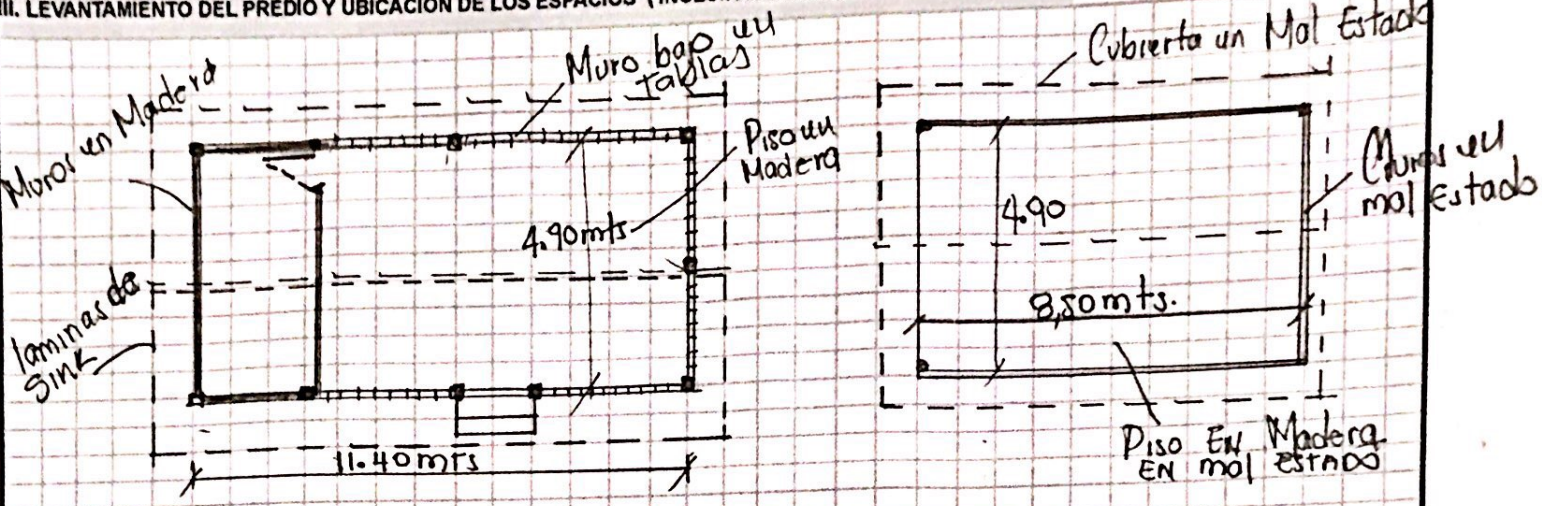 III. LEVANTAMIENTO DEL PREDIO Y UBICACIÓN DE LOS ESPACIOS
Muros en Madera
Muro bajo en
tablas
Piso en
Madera
4.90mts
laminas de
Sink
11.40mts
Cubierta en Mal Estado
Muros en
mal Estado
4.90
8,80mts.
Piso EN Madera
EN mal ESTADO